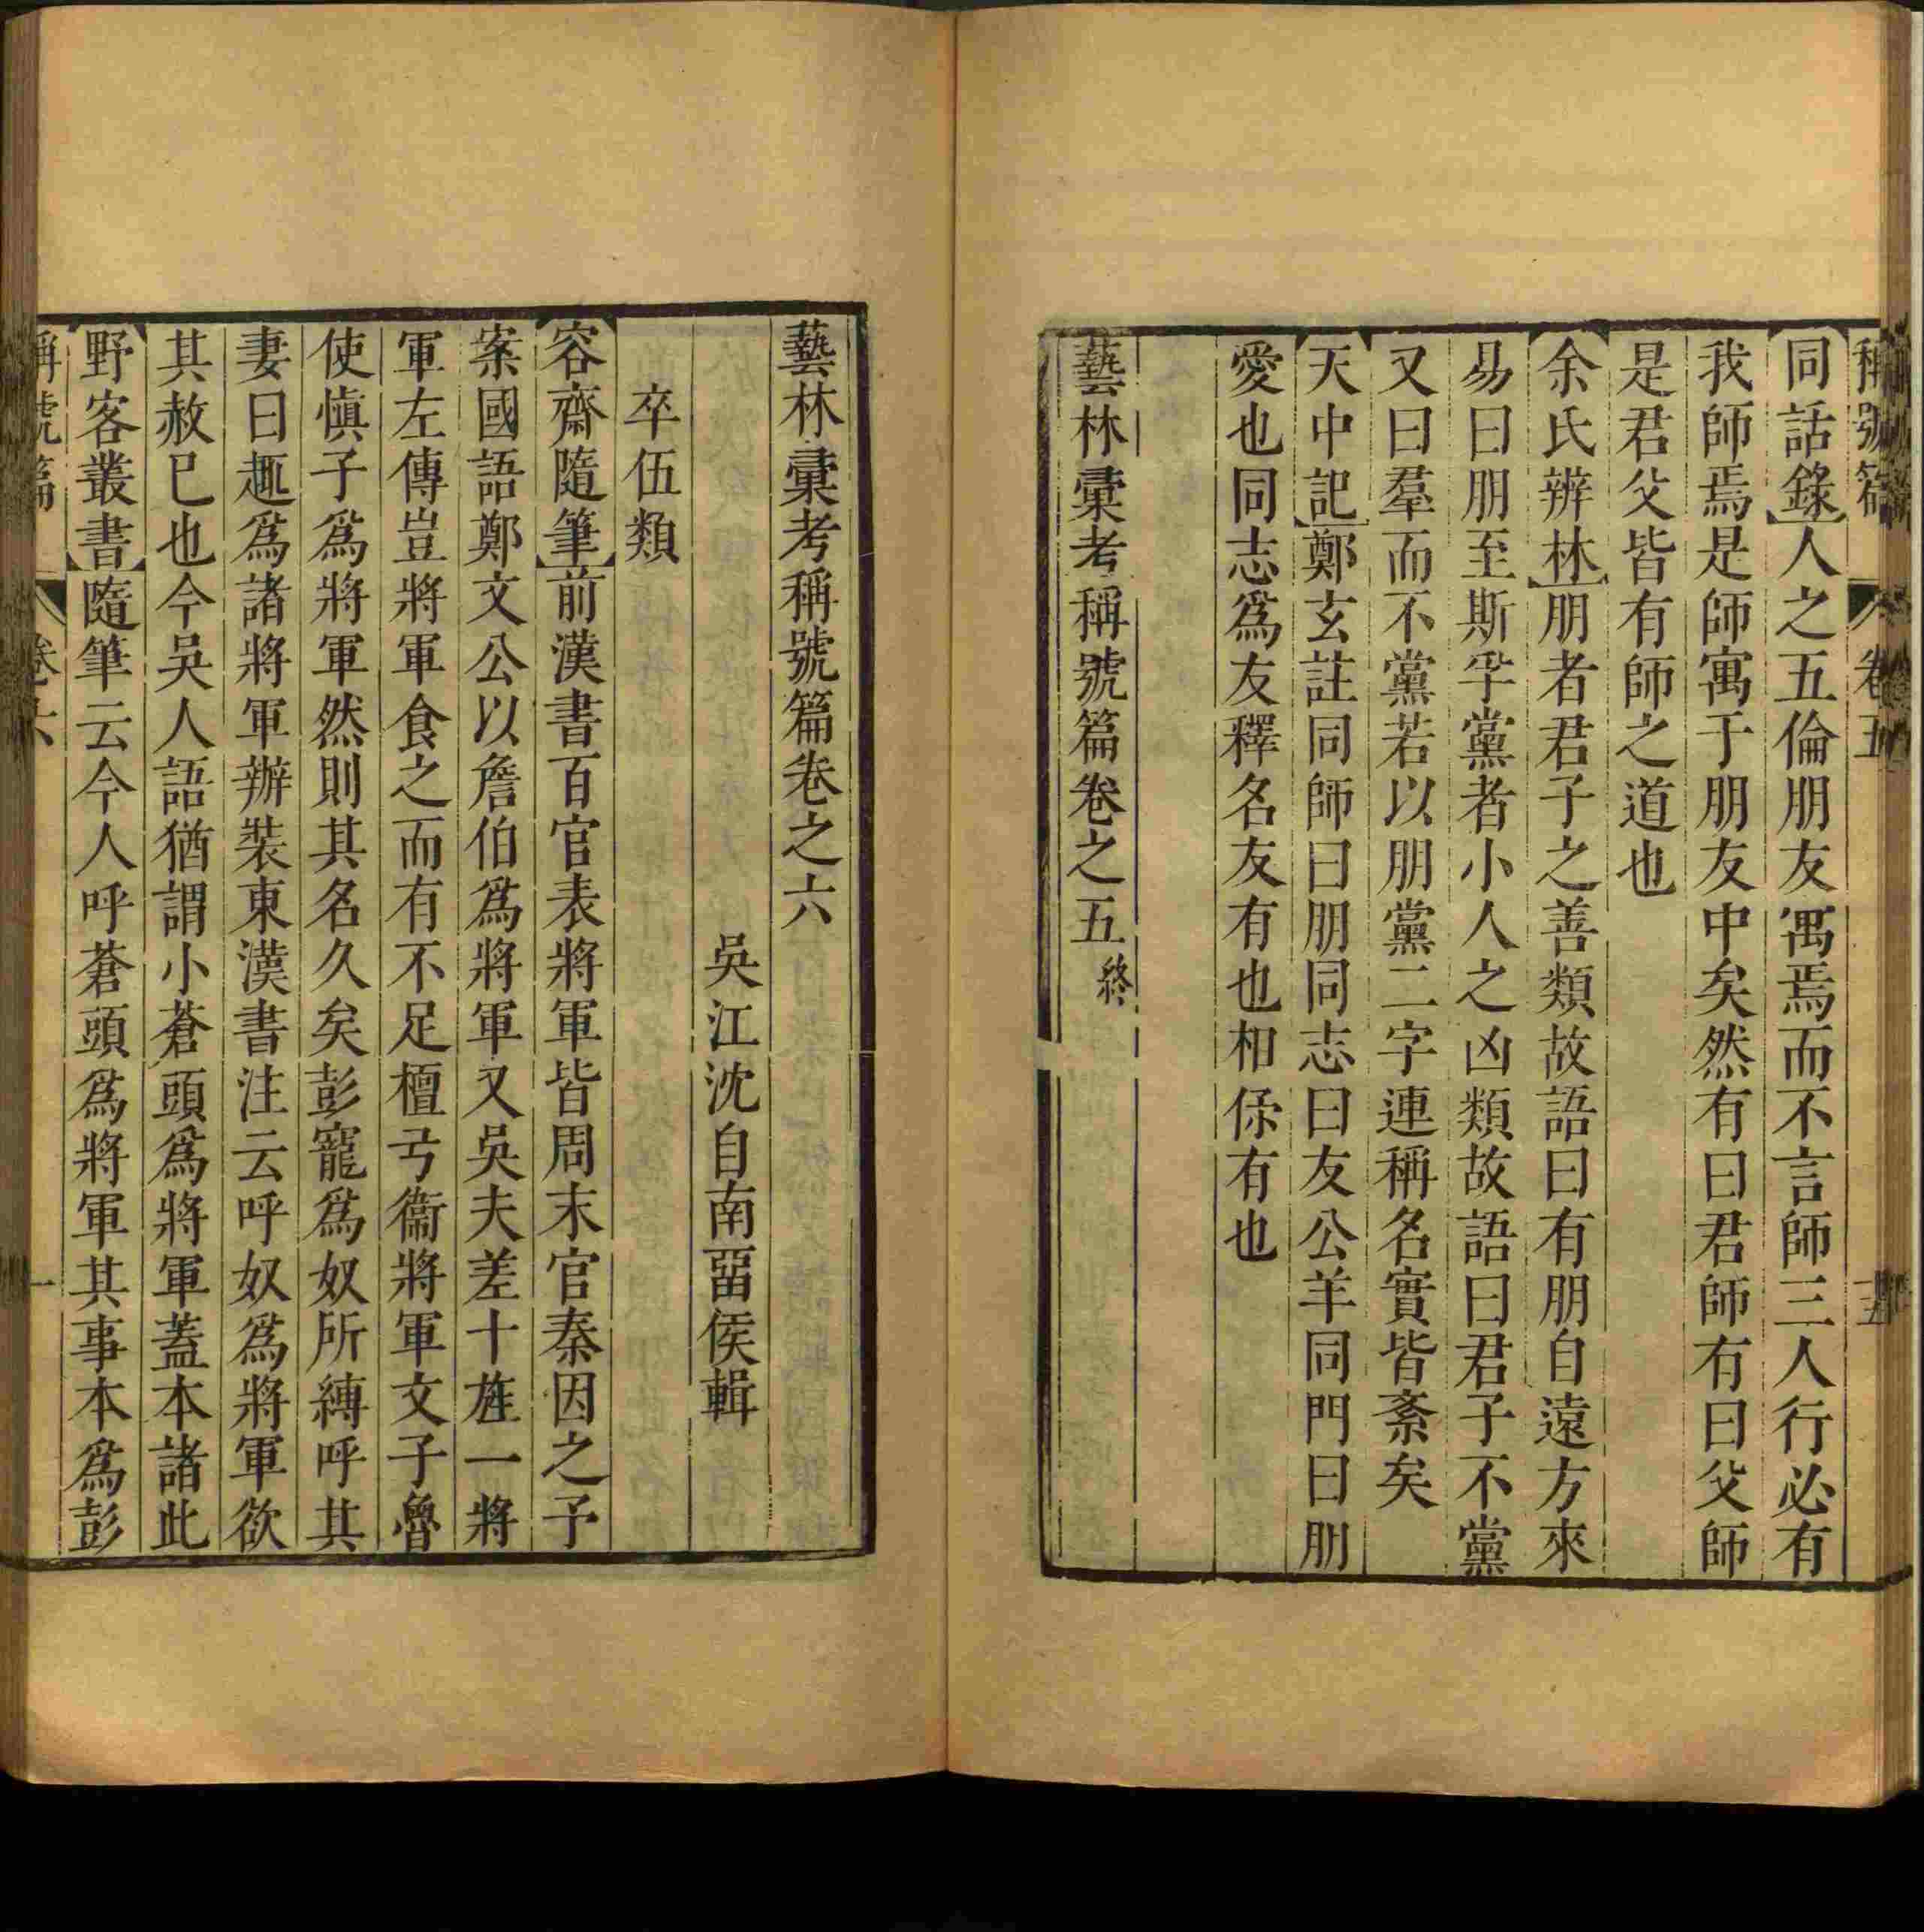 稱號篇 卷五 十五
同話錄人之五倫朋友寓焉而不言師三人行必有
我師焉是師寓于朋友中矣然有曰君師有曰父師
是君父皆有師之道也
余氏辨林朋者君子之善類故語曰有朋自遠方來
易曰朋至斯孚黨者小人之凶類故語曰君子不黨
又曰羣而不黨若以朋黨二字連稱名實皆紊矣
天中記鄭玄註同師曰朋同志曰友公羊同門曰朋
愛也同志爲友釋名友有也相保有也
藝林彙考稱號篇卷之五終
藝林彙考稱號篇卷之六
吳江沈自南畱侯輯
卒伍類
容齋隨筆前漢書百官表將軍皆周末官秦因之予
案國語鄭文公以詹伯爲將軍又吳夫差十旌一將
軍左傳豈將軍食之而有不足檀弓衞將軍文子魯
使愼子爲將軍然則其名久矣彭寵爲奴所縛呼其
妻曰趣爲諸將軍辦裝東漢書注云呼奴爲將軍欲
其赦已也今吳人語猶謂小蒼頭爲將軍蓋本諸此
野客叢書隨筆云今人呼蒼頭爲將軍其事本爲彭
稱號篇 卷六 一